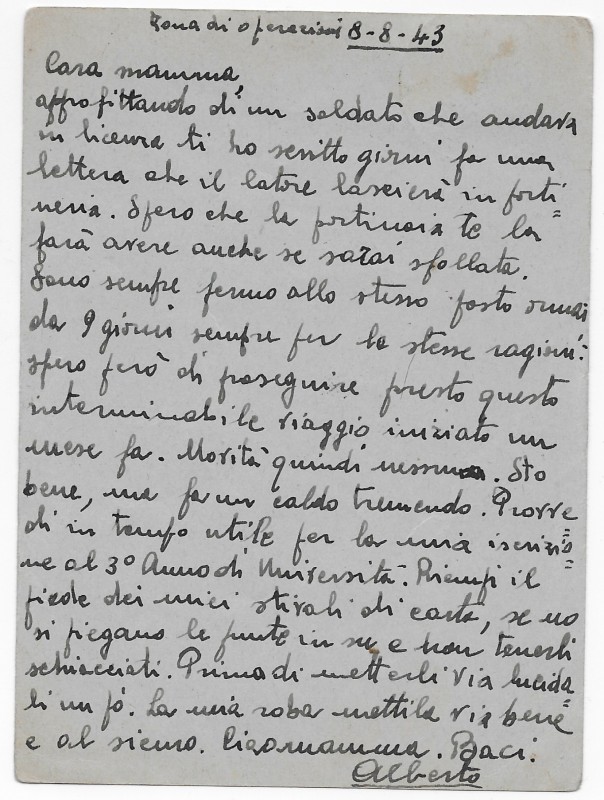 Zona di operazioni 8-8-43
Cara mamma,
approfittando di un soldato che andava
in licenza ti ho scritto giorni fa una
lettera che il latore lascierà in porti=
neria. Spero che la portinaia te la
farà avere anche se sarai sfollata.
Sono sempre fermo allo stesso posto ormai
da 9 giorni sempre per le stesse ragioni:
spero però di proseguire presto questo
interminabile viaggio iniziato un
mese fa. Novità quindi nessuna. Sto
bene, ma fa un caldo tremendo. Provve=
di in tempo utile per la mia iscrizio=
ne al 3° Anno di Università. Riempi il
piede dei miei stivali di carta, se no
si piegano le punte in su e non tenerli
schiacciati. Prima di metterli via lucida=
li un pò. La mia roba mettila via bene
e al sicuro. Ciao mamma. Baci.
Alberto